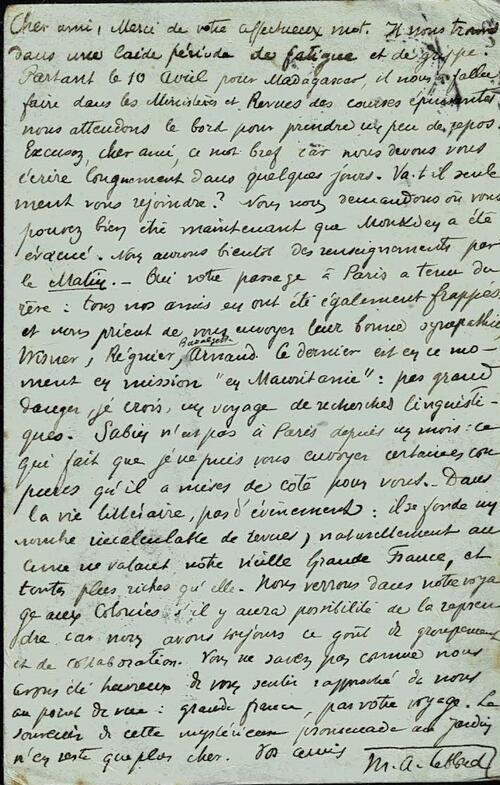 Cher ami, Merci de votre affectueux mot. Il nous trouve
dans une laide période de fatigue et de grippe.
Partant le 10 Avril pour Madagascar, il nous a fallu
faire dans les Ministères et Revues des courses épuisantes
nous attendons le bord pour prendre un peu de repos.
Excusez, cher ami, ce mot bref car nous devons vous
écrire longuement dans quelques jours. Va-t-il seule
ment vous rejoindre? Nous nous demandons où vous
pouvez bien être maintenant que Moukden a été
évacué. Nous aurons bientôt des renseignements par
le Matin. - Oui votre passage à Paris a tenu du
rêve : tous nos amis en ont été également frappés
et nous prient de vous envoyer leur bonne sympathie,
Wisner, Régnier, Arnaud. Ce dernier est en ce mo-
ment en mission "en Mauritanie" : pas grand
danger, je crois, un voyage de recherches linguisti-
ques. Sabin n'est pas à Paris depuis un mois : ce
qui fait que je ne puis vous envoyer certaines cou
pures qu'il a mises de côté pour vous. - Dans
la vie littéraire, pas d'évènement : il se fonde un
nombre incalculable de revues, naturellement au
cune ne valant notre vieille Grande France, et
toutes plus riches qu'elle. Nous verrons dans notre voya
ge aux Colonies s'il y aura possibilité de la repren
dre car nous avons toujours ce goût de groupement
et de collaboration. Vous ne savez pas comme nous
avons été heureux de vous sentir rapproché de nous
au point de vue : grande france, par votre voyage. Le
souvenir de cette mystérieuse promenade au jardin
n'en reste que plus cher. Vos amis
M.-A. Leblond